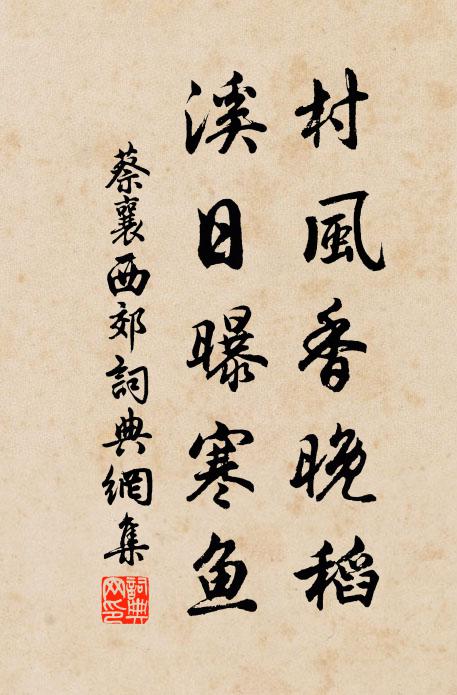 村風香晚稻
溪日曝寒鱼
蔡襄西郊詞典網集
詞典
网印